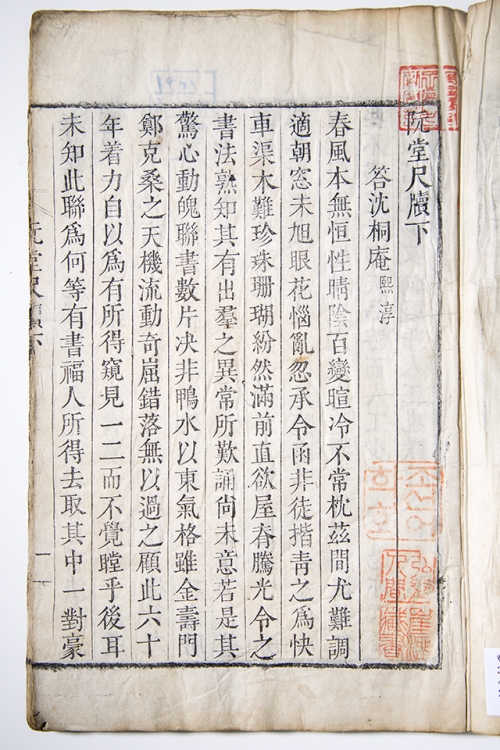 阮堂尺牘下
答沈桐庵熙淳
春風本無恒性晴陰百變暄冷不常枕茲間尤難調
適朝窓未旭眼花惱亂忽承令函非徒揩青之爲快
車渠木難珍珠珊瑚紛然滿前直欲屋脊騰光令之
書法熟知其有出羣之異常所歎誦尙未意若是其
驚心動魄聯書數片决非鴨水以東氣格雖金壽門
鄭克桑之天機流動奇崛錯落無以過之顧此六十
年着力自以爲有所得窺見一二而不覺瞠乎後耳
未知此聯爲何等有書福人所得去取其中一對豪
阮堂尺牘下
一